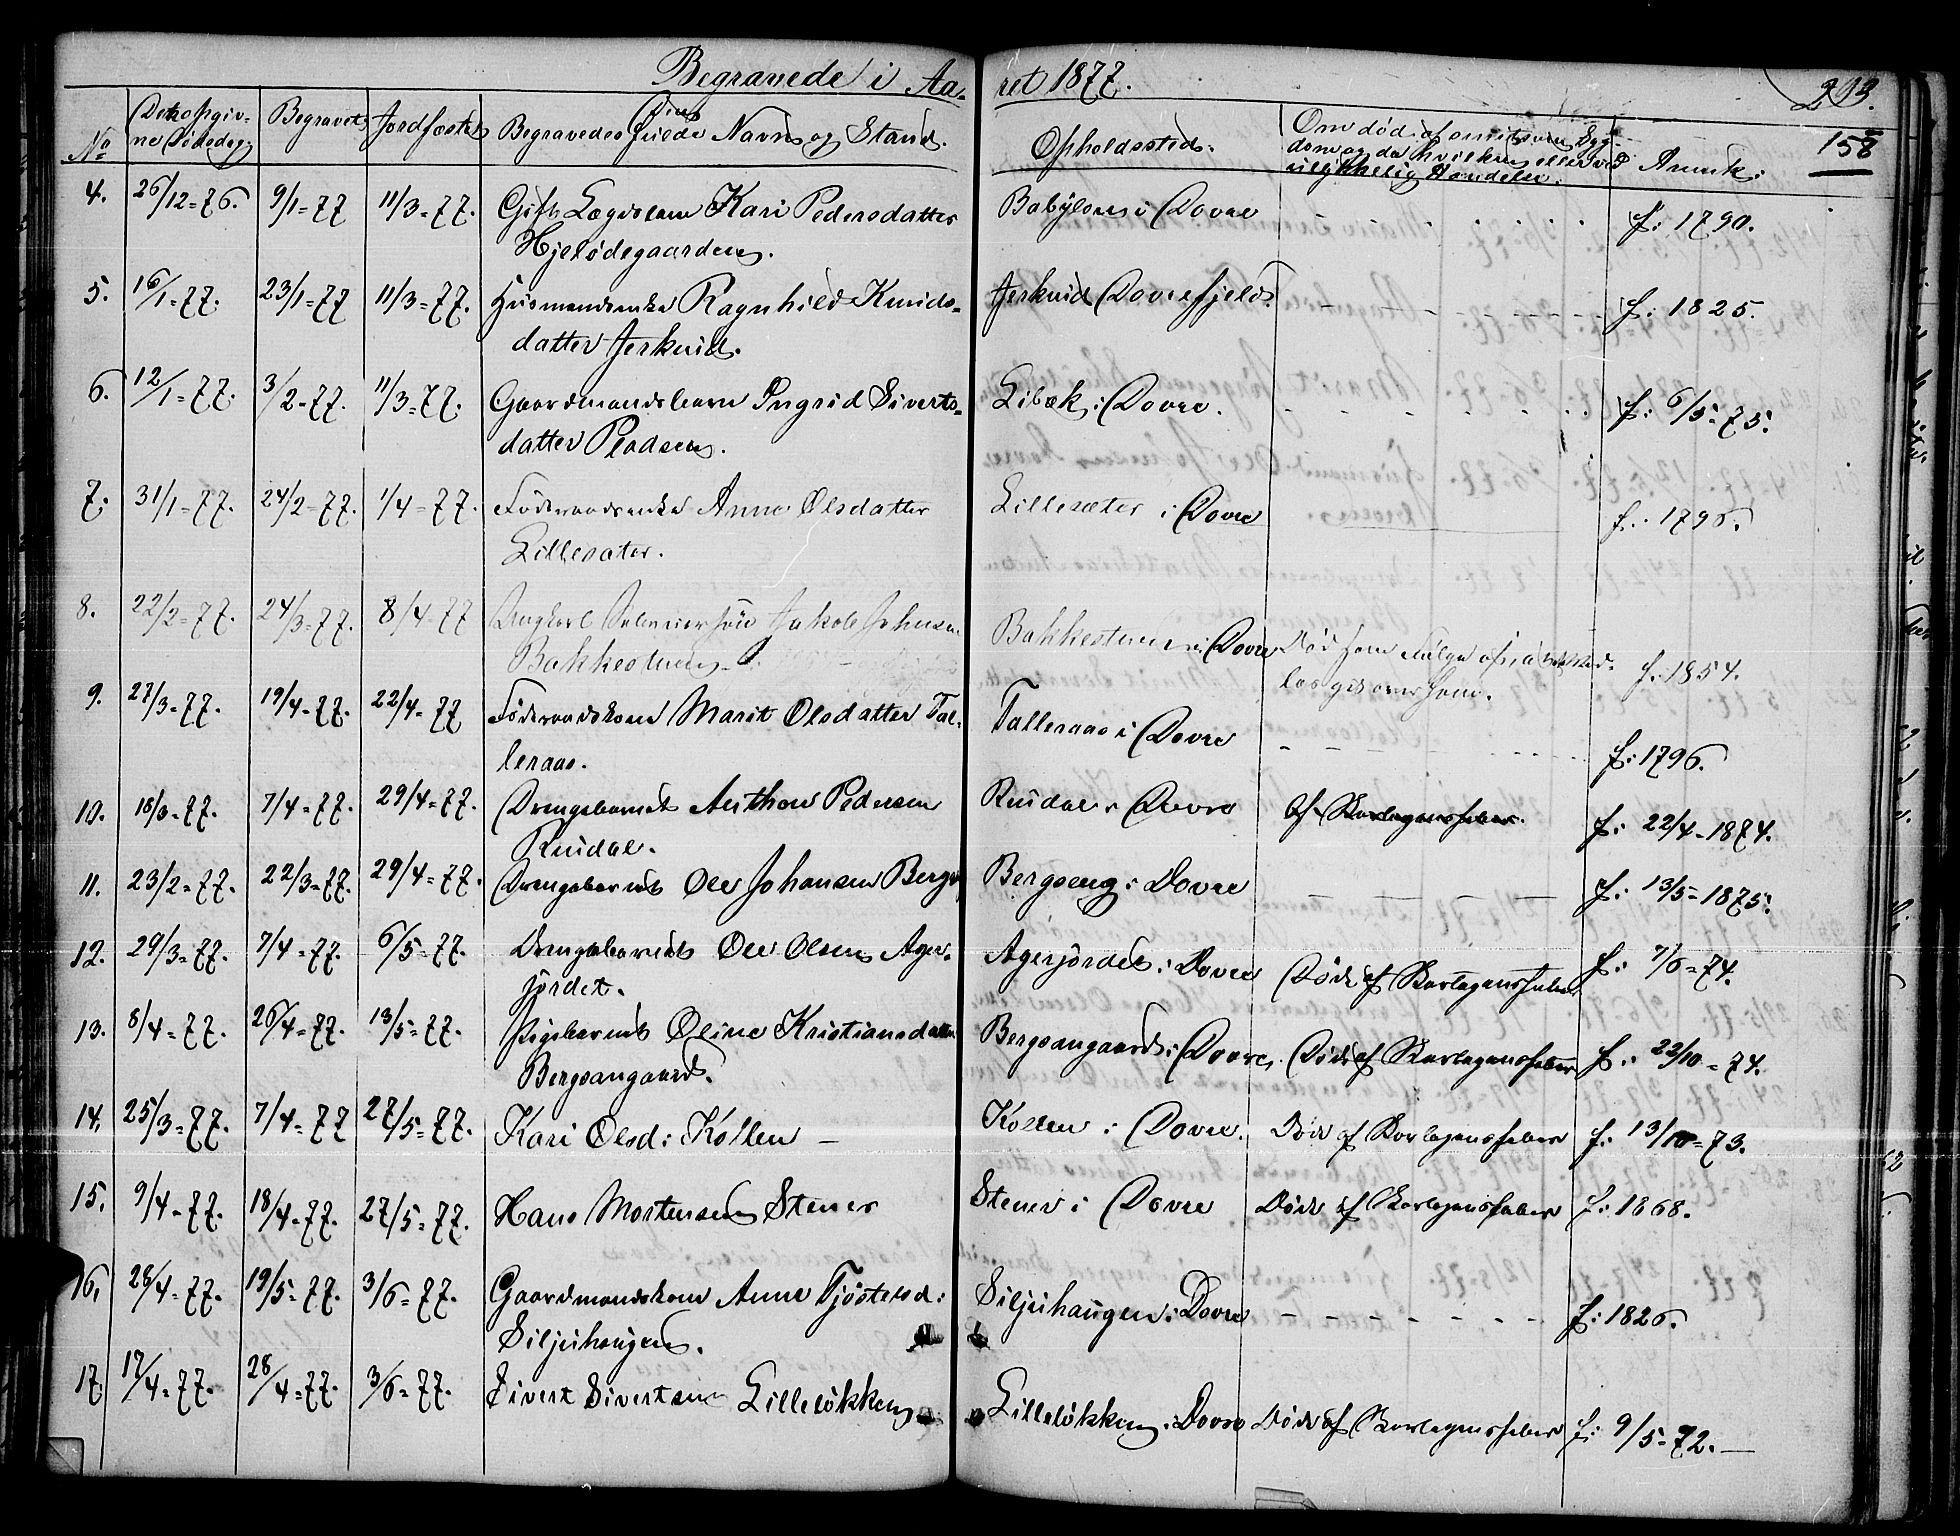 Begravede i Aaret 1877.
203.
158
No
Den opgivne Dødsdag.
Begravet
Jordfæstet
Begravedes fulde Navn og Stand.
Opholdssted.
Om død af smitsom Sygdom og da hvilken eller ved ulykkelig Hændelse.
Anmærk:
4. 26/12=76. 9/1=77 11/3=77. Gift Lægdslem Kari Pedersdatter Babylon i Dovre f: 1790.
Hjelødegaarden.
5. 16/1=77. 23/1=77 11/3=77. Husmandsenke Ragnhild Knuds- Jerkind Dovrefjeld. f: 1825.
datter Jerkind.
6. 12/1=77. 3/2=77. 11/3=77. Gaardmandsbarn Ingrid Siverts- Libæk i Dovre. f: 6/5=75.
datter Pladsen.
7. 31/1=77. 24/2=77. 1/4=77. Føderaadsenke Anne Olsdatter Lillesæter i Dovre f: 1796.
Lillesæter.
8. 22/2=77. 24/3=77. 8/4=77 Ungkarl Jakob Johnsen Bakkestuen i Dovre Død som Følge af f: 1854.
Bakkestuen
9. 27/3=77. 19/4=77. 22/4=77 Føderaadskone Marit Olsdatter Tal- Talleraas i Dovre f: 1796.
leraas.
10. 18/3=77. 7/4=77. 29/4=77. Drengebarnet Anthon Pedersen Rudal i Dovre Af Skarlagensfeber. f: 22/4-1874.
Rudal.
11. 23/2=77. 22/3=77. 29/4=77. Drengebarnet Ole Johansen Bergs Bergseng i Dovre f: 13/5=1875.
12. 29/3=77. 7/4=77. 6/5=77. Drengebarnet Ole Olsen Ager- Agerjordet i Dovre Død af Skarlagensfeber f: 7/6=74.
jordet.
13. 8/4=77. 26/4=77. 13/5=77. Pigebarnet Oline Kristiansdatter Bergsangaard i Dovre. Død af Skarlagensfeber f: 23/10=74.
Bergsangaard.
14. 25/3=77. 7/4=77 27/5=77. Kari Olsd: Kollen — Kollen i Dovre. Død af Skarlagensfeber f: 13/10=73.
15. 9/4=77. 18/4=77. 27/5=77. Hans Mortensen Stener Stener i Dovre Død af Skarlagensfeber f: 1868.
16. 28/4=77. 19/5=77. 3/6=77. Gaardmandskone Anne Tjøstelsd: Siljuhaugen i Dovre f: 1826.
Siljuhaugen.
17. 17/4=77. 28/4=77. 3/6=77. Sivert Sivertsen Lilleløkken Lilleløkken i Dovre Død af Skarlagensfeber f: 9/5=72. —